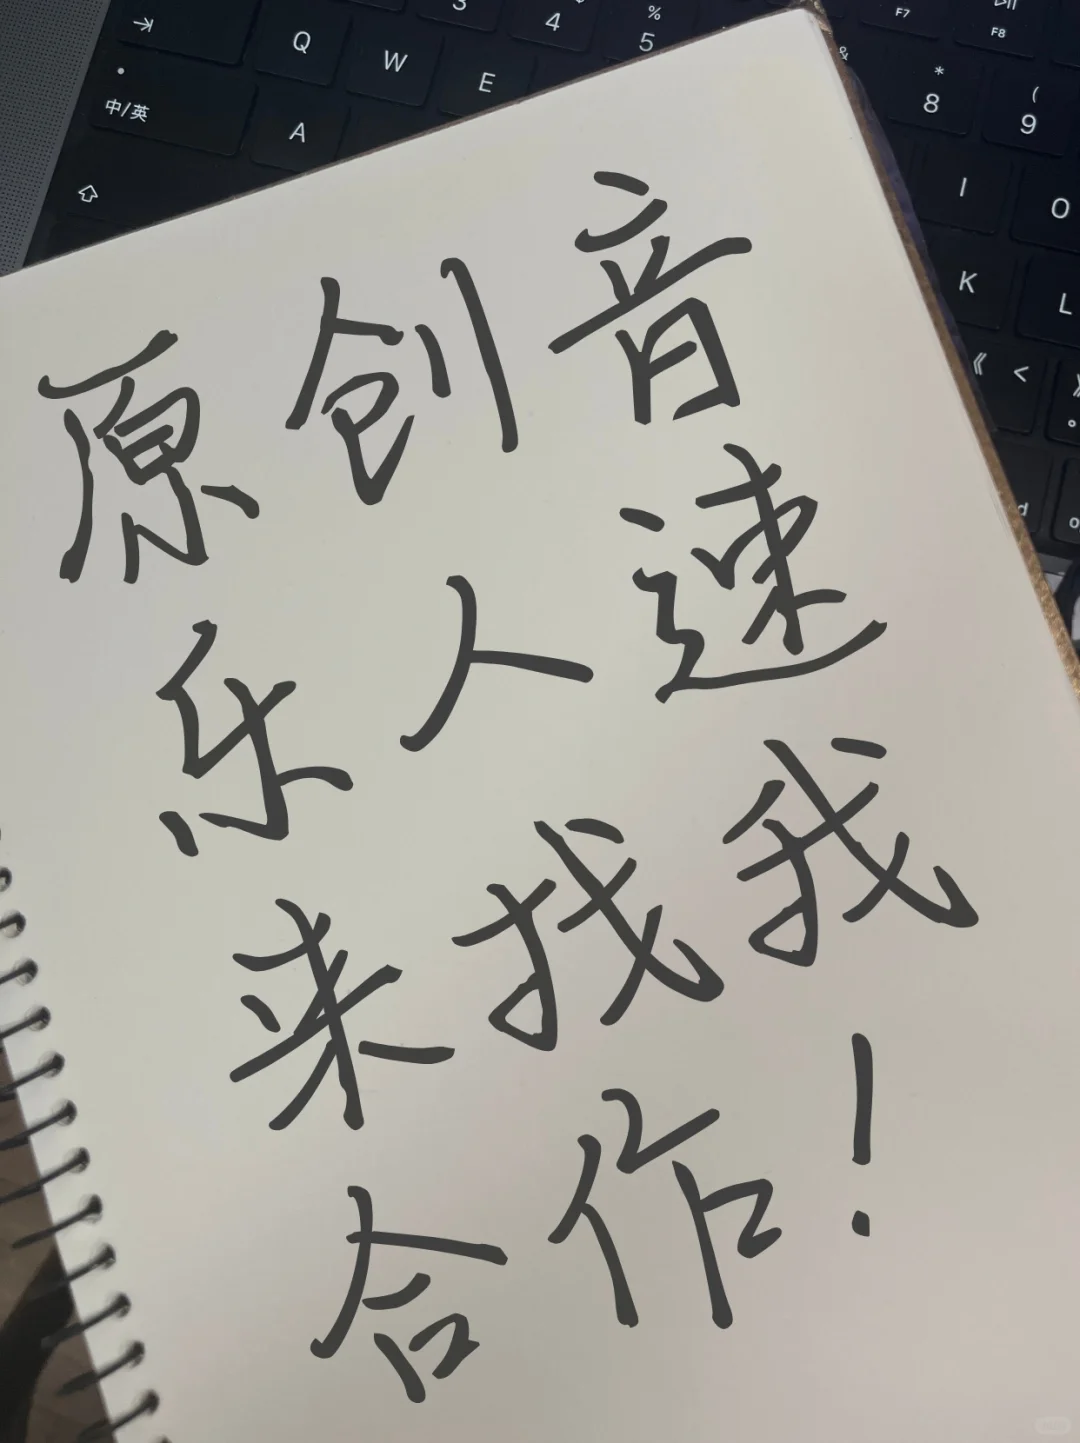 原创音
乐人速
来找我
合作！
Q W E
3 4 % 5
F7 F8
中/英
A
& * 8 ( 9
I O
K L
《 < 》 。